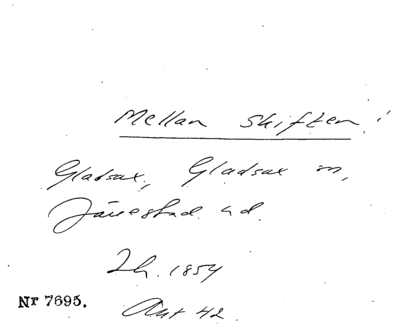 Mellan skiften!
Gladsax, Gladsax sn,
Järrestad hd.
Lh. 1854
Nr 7695.
Akt 42